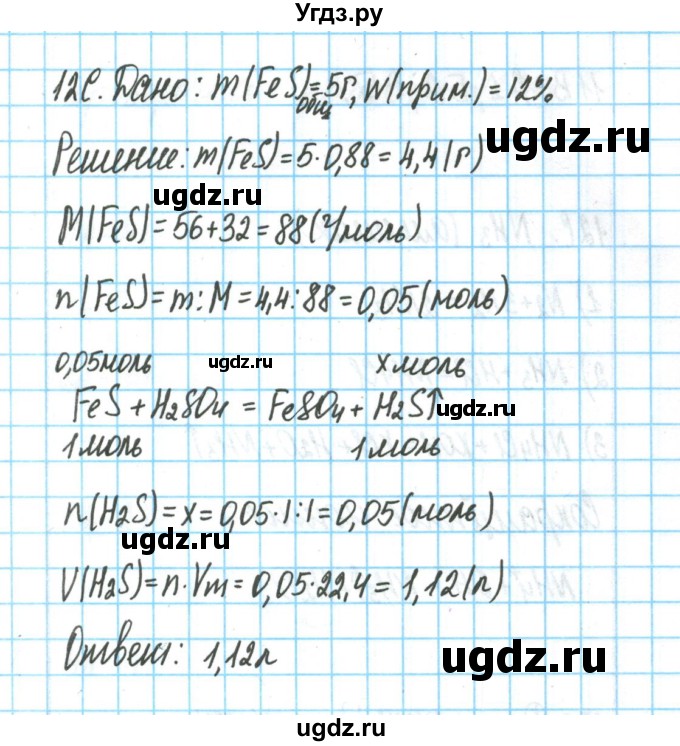 Угдз.ру
12С. Дано: m(FeS)общ=5г, w(прим.)=12%
Решение: m(FeS)=5·0,88=4,4(г)
ugdz.ru ugdz.ru
M(FeS)=56+32=88(г/моль)
n(FeS)=m:M=4,4:88=0,05(моль)
0,05моль ugdz.ru x моль
FeS+H₂SO₄=FeSO₄+H₂S↑ ugdz.ru
1моль 1моль
n(H₂S)=x=0,05·1:1=0,05(моль)
ugdz.ru
V(H₂S)=n·Vm=0,05·22,4=1,12(л)
Ответ: 1,12л
ugdz.ru
ugdz.ru